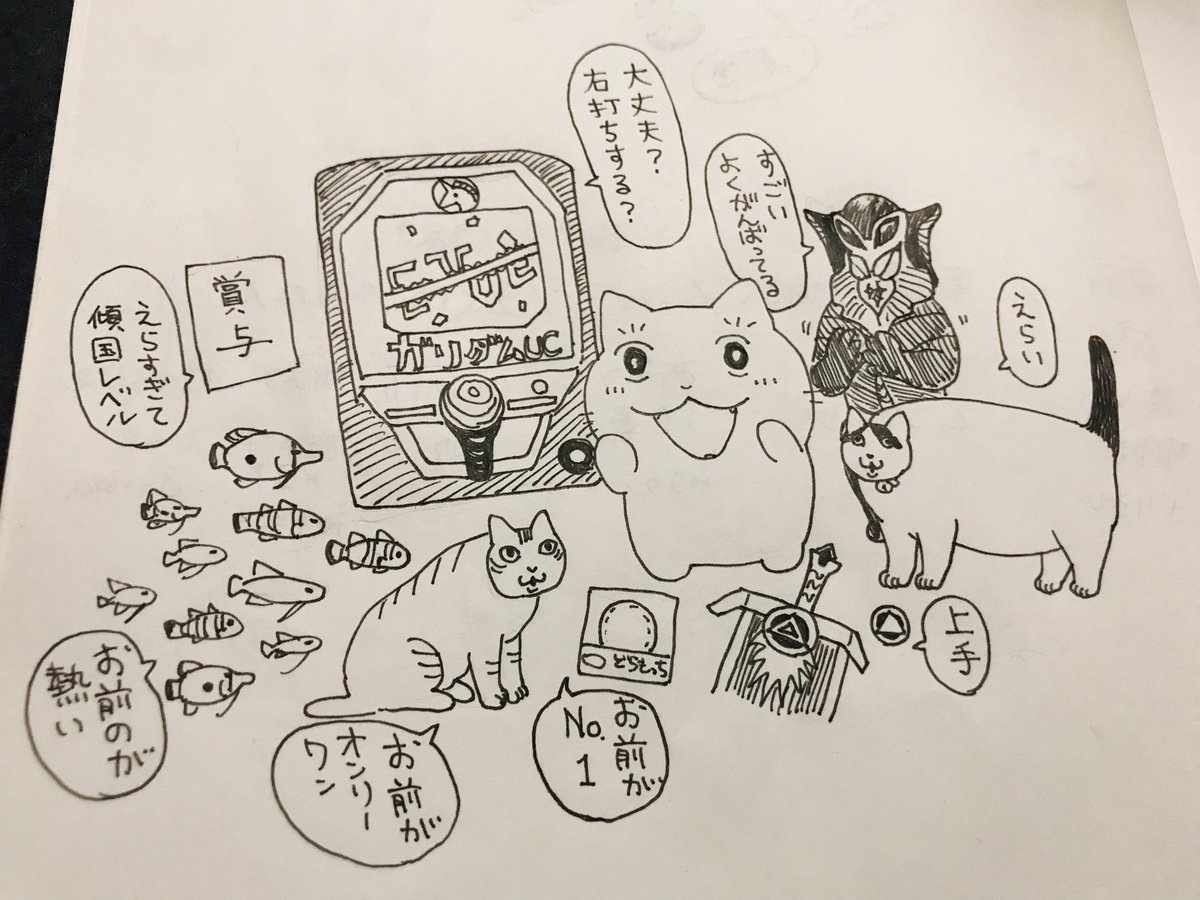 大丈夫？
右打ちする？
すごい
よくがんばってる
えらい
賞与
えらすぎて
傾国レベル
ガリダムUC
上手
どらもっち
お前が
No.1
お前が
オンリー
ワン
お前のが
熱い